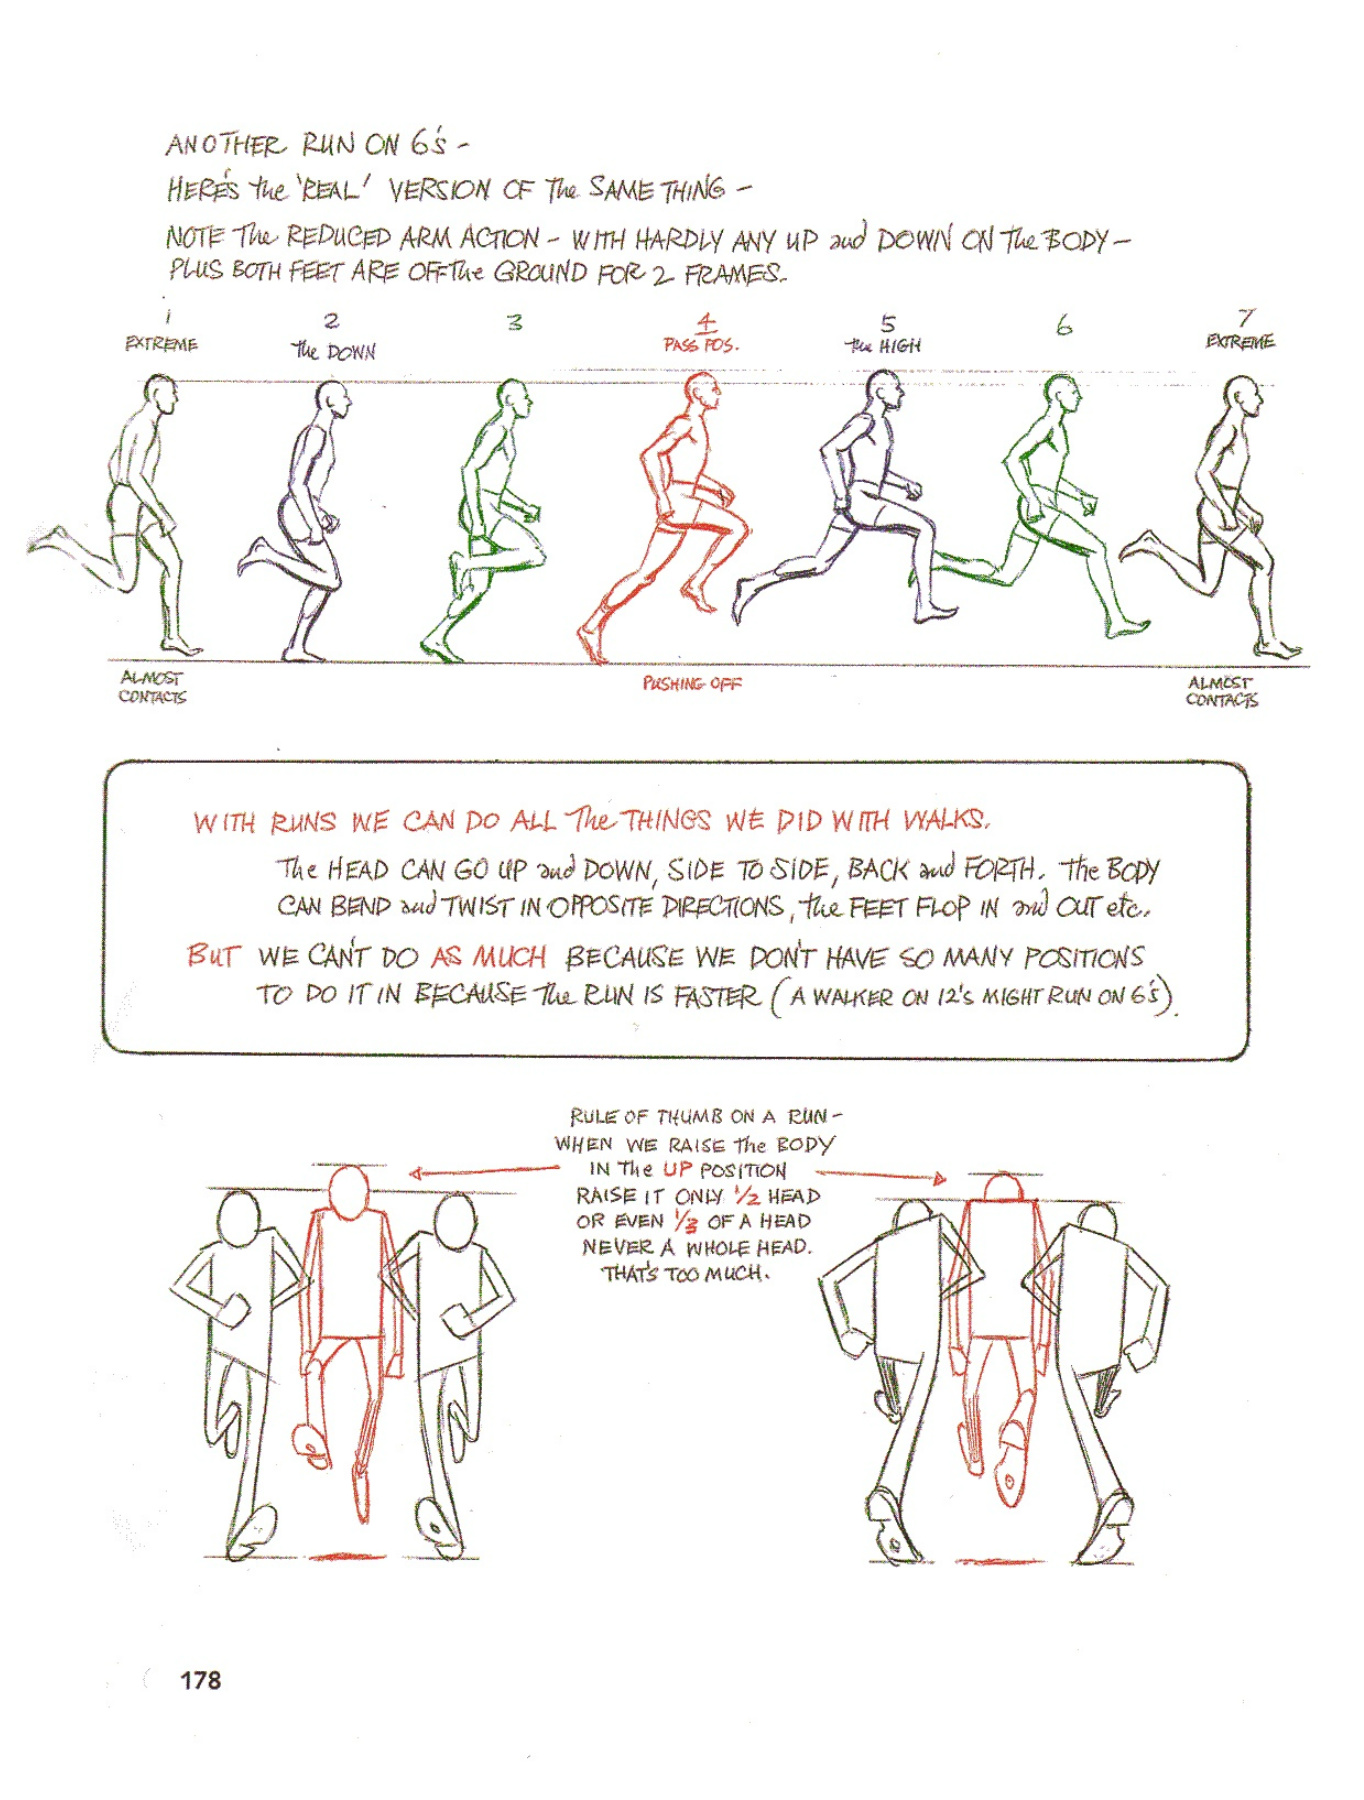 ANOTHER RUN ON 6'S -
HERE'S the 'REAL' VERSION OF The SAME THING -
NOTE The REDUCED ARM ACTION - WITH HARDLY ANY UP and DOWN ON The BODY -
PLUS BOTH FEET ARE OFF The GROUND FOR 2 FRAMES.
1 2 3 4 5 6 7
EXTREME the DOWN PASS POS. the HIGH EXTREME
ALMOST CONTACTS PUSHING OFF ALMOST CONTACTS
WITH RUNS WE CAN DO ALL The THINGS WE DID WITH WALKS.
The HEAD CAN GO UP and DOWN, SIDE TO SIDE, BACK and FORTH. The BODY
CAN BEND and TWIST IN OPPOSITE DIRECTIONS, the FEET FLOP IN and OUT etc.
BUT WE CAN'T DO AS MUCH BECAUSE WE DON'T HAVE SO MANY POSITIONS
TO DO IT IN BECAUSE The RUN IS FASTER (A WALKER ON 12's MIGHT RUN ON 6's).
RULE OF THUMB ON A RUN -
WHEN WE RAISE The BODY
IN The UP POSITION
RAISE IT ONLY 1/2 HEAD
OR EVEN 1/3 OF A HEAD
NEVER A WHOLE HEAD.
THAT'S TOO MUCH.
178